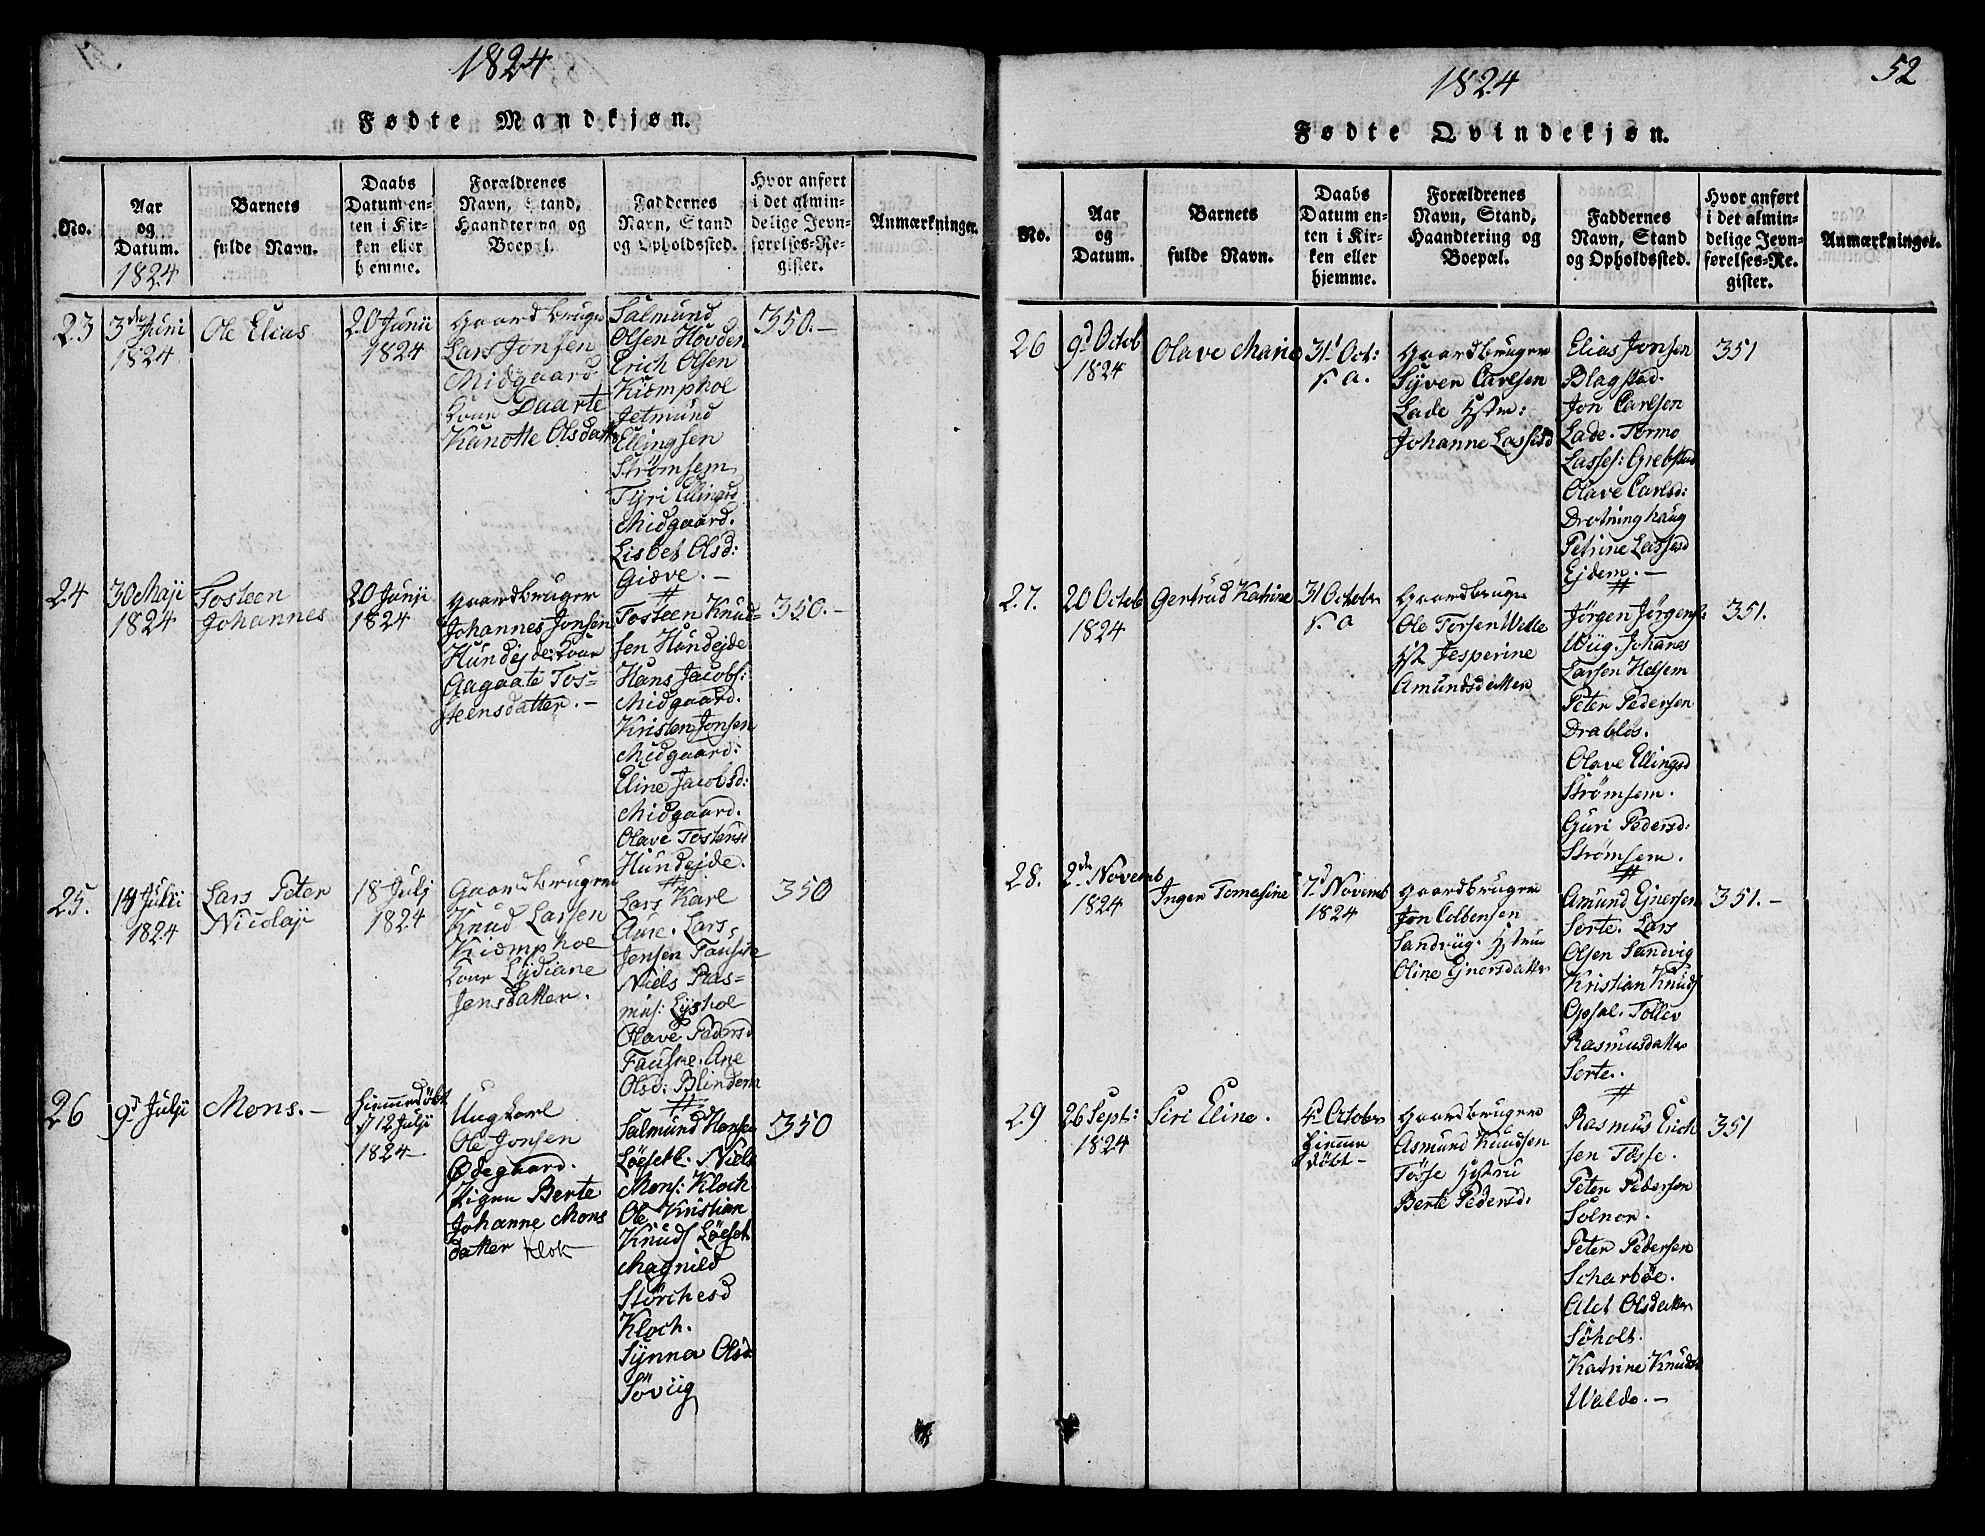 1824
Fødte Mandkjøn.
No.
Aar
og
Datum.
1824
Barnets
fulde Navn.
Daabs
Datum en-
ten i Kir-
ken eller
hjemme.
Forældrenes
Navn, Stand,
Haandtering og
Boepæl.
Faddernes
Navn, Stand
og Opholdssted.
Hvor anført
i det almin-
delige Jevn-
førelses-Re-
gister.
Anmærkninger.
23
3de Juni
1824
Ole Elias
20 Junii
1824
Gaardbruger
Lars Jonsen
Midgaard.
Kone Daarte
Kanotte Olsdatter
Salmund
Olsen Hovden
Erich Olsen
Kiømphoe
Jetmund
Ellingsen
Strømsem
Tyri Ellingsd
Midgaard.
Lisbet Olsd:
Giæve. —
350.—
24
30 Maji
1824
Tosteen
Johannes
20 Junji
1824
Gaardbruger
Johannes Jonsen
Hundejde: Kone
Aagaate Tos=
steensdatter. —
Tosteen Knud=
sen Hundejde
Hans Jacobs:
Midgaard.
Kristen Jonsen
Midgaard:
Eline Jacobsd:
Midgaard.
Olave Tostensd
Hundejde.
350.—
25.
14 Julii
1824
Lars Peter
Nicolaj
18 Julj
1824
Gaardbruger
Knud Larsen
Kiømphoe
Kone Lydiane
Jensdatter.
Lars Karl
Aure. Lars
Jensen Fauske
Niels Ras=
mus: Lyshoe
Olave Pedersd
Fauske. Ane
Olsd: Blindem
350
26
9d Julji
Mons. —
Hiemmedøbt
d 12 Julji
1824 —
Ungkarl
Ole Jonsen
Ødegaard.
Pigen Berte
Johanne Mons
datter Klok
Salmund Hansen
Løeset. Niels
Mons: Kloch
Ole Kristian
Knuds Løeset
Magnild
Størchesd
Kloch.
Synna Olsd
Søviig
350
52
1824
Fødte Qvindekjøn.
No.
Aar
og
Datum.
Barnets
fulde Navn.
Daabs
Datum en-
ten i Kir-
ken eller
hjemme.
Forældrenes
Navn, Stand,
Haandtering og
Boepæl.
Faddernes
Navn, Stand
og Opholdssted.
Hvor anført
i det almin-
delige Jevn-
førelses-Re-
gister.
Anmærkninger.
26
9d Octob
1824
Olave Marie
31d Oct:
s. a.
Gaardbruger
Syver Carlsen
Lade Hstr:
Johanne Lassesd
Elias Jonsen
Blagstad.
Jon Carlsen
Lade. Tormo
Lasses: Grebstad
Olave Carlsd:
Drotninghaug
Petrine Lassesd
Ejdem. —
351
27.
20 Octob
1824
Gertrud Katrine
31 October
s. a
Gaardbruger
Ole Torsen Welle
Hst Jesperine
Amundsdatter
Jørgen Jørgens:
Wiig. Johanes
Larsen Helsem
Peter Pedersen
Drabløs.
Olave Ellingsd
Strømsem.
Guri Pedersd:
Strømsem.
351.
28.
2de Novemb
1824
Inger Tomasine
7d Novemb
1824
Gaardbruger
Jon Colbensen
Sandviig. Hstru
Oline Ejnersdatter
Amund Ejnersen
Sorte. Lars
Olsen Sandvig
Kristian Knuds
Opsal. Tollev
Rasmusdatter
Sorte.
351. —
29
26 Sept:
1824
Siri Eline.
4d October
Hiemme
døbt —
Gaardbruger
Asmund Knudsen
Tøsse Hstru
Berte Pedersd:
Rasmus Erich
sen Tøsse.
Peter Pedersen
Solnor.
Peter Pedersen
Scharbøe.
Alet Olsdatter
Søholt.
Katrine Knudsd
Walde. —
351